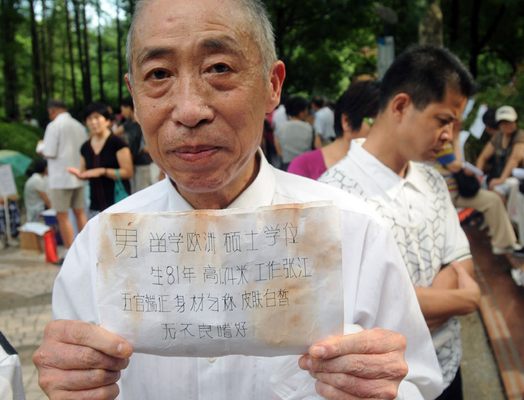 男 留学欧洲 硕士学位
生81年 高 米 工作张江
五官端正 身材匀称 皮肤白皙
无不良嗜好